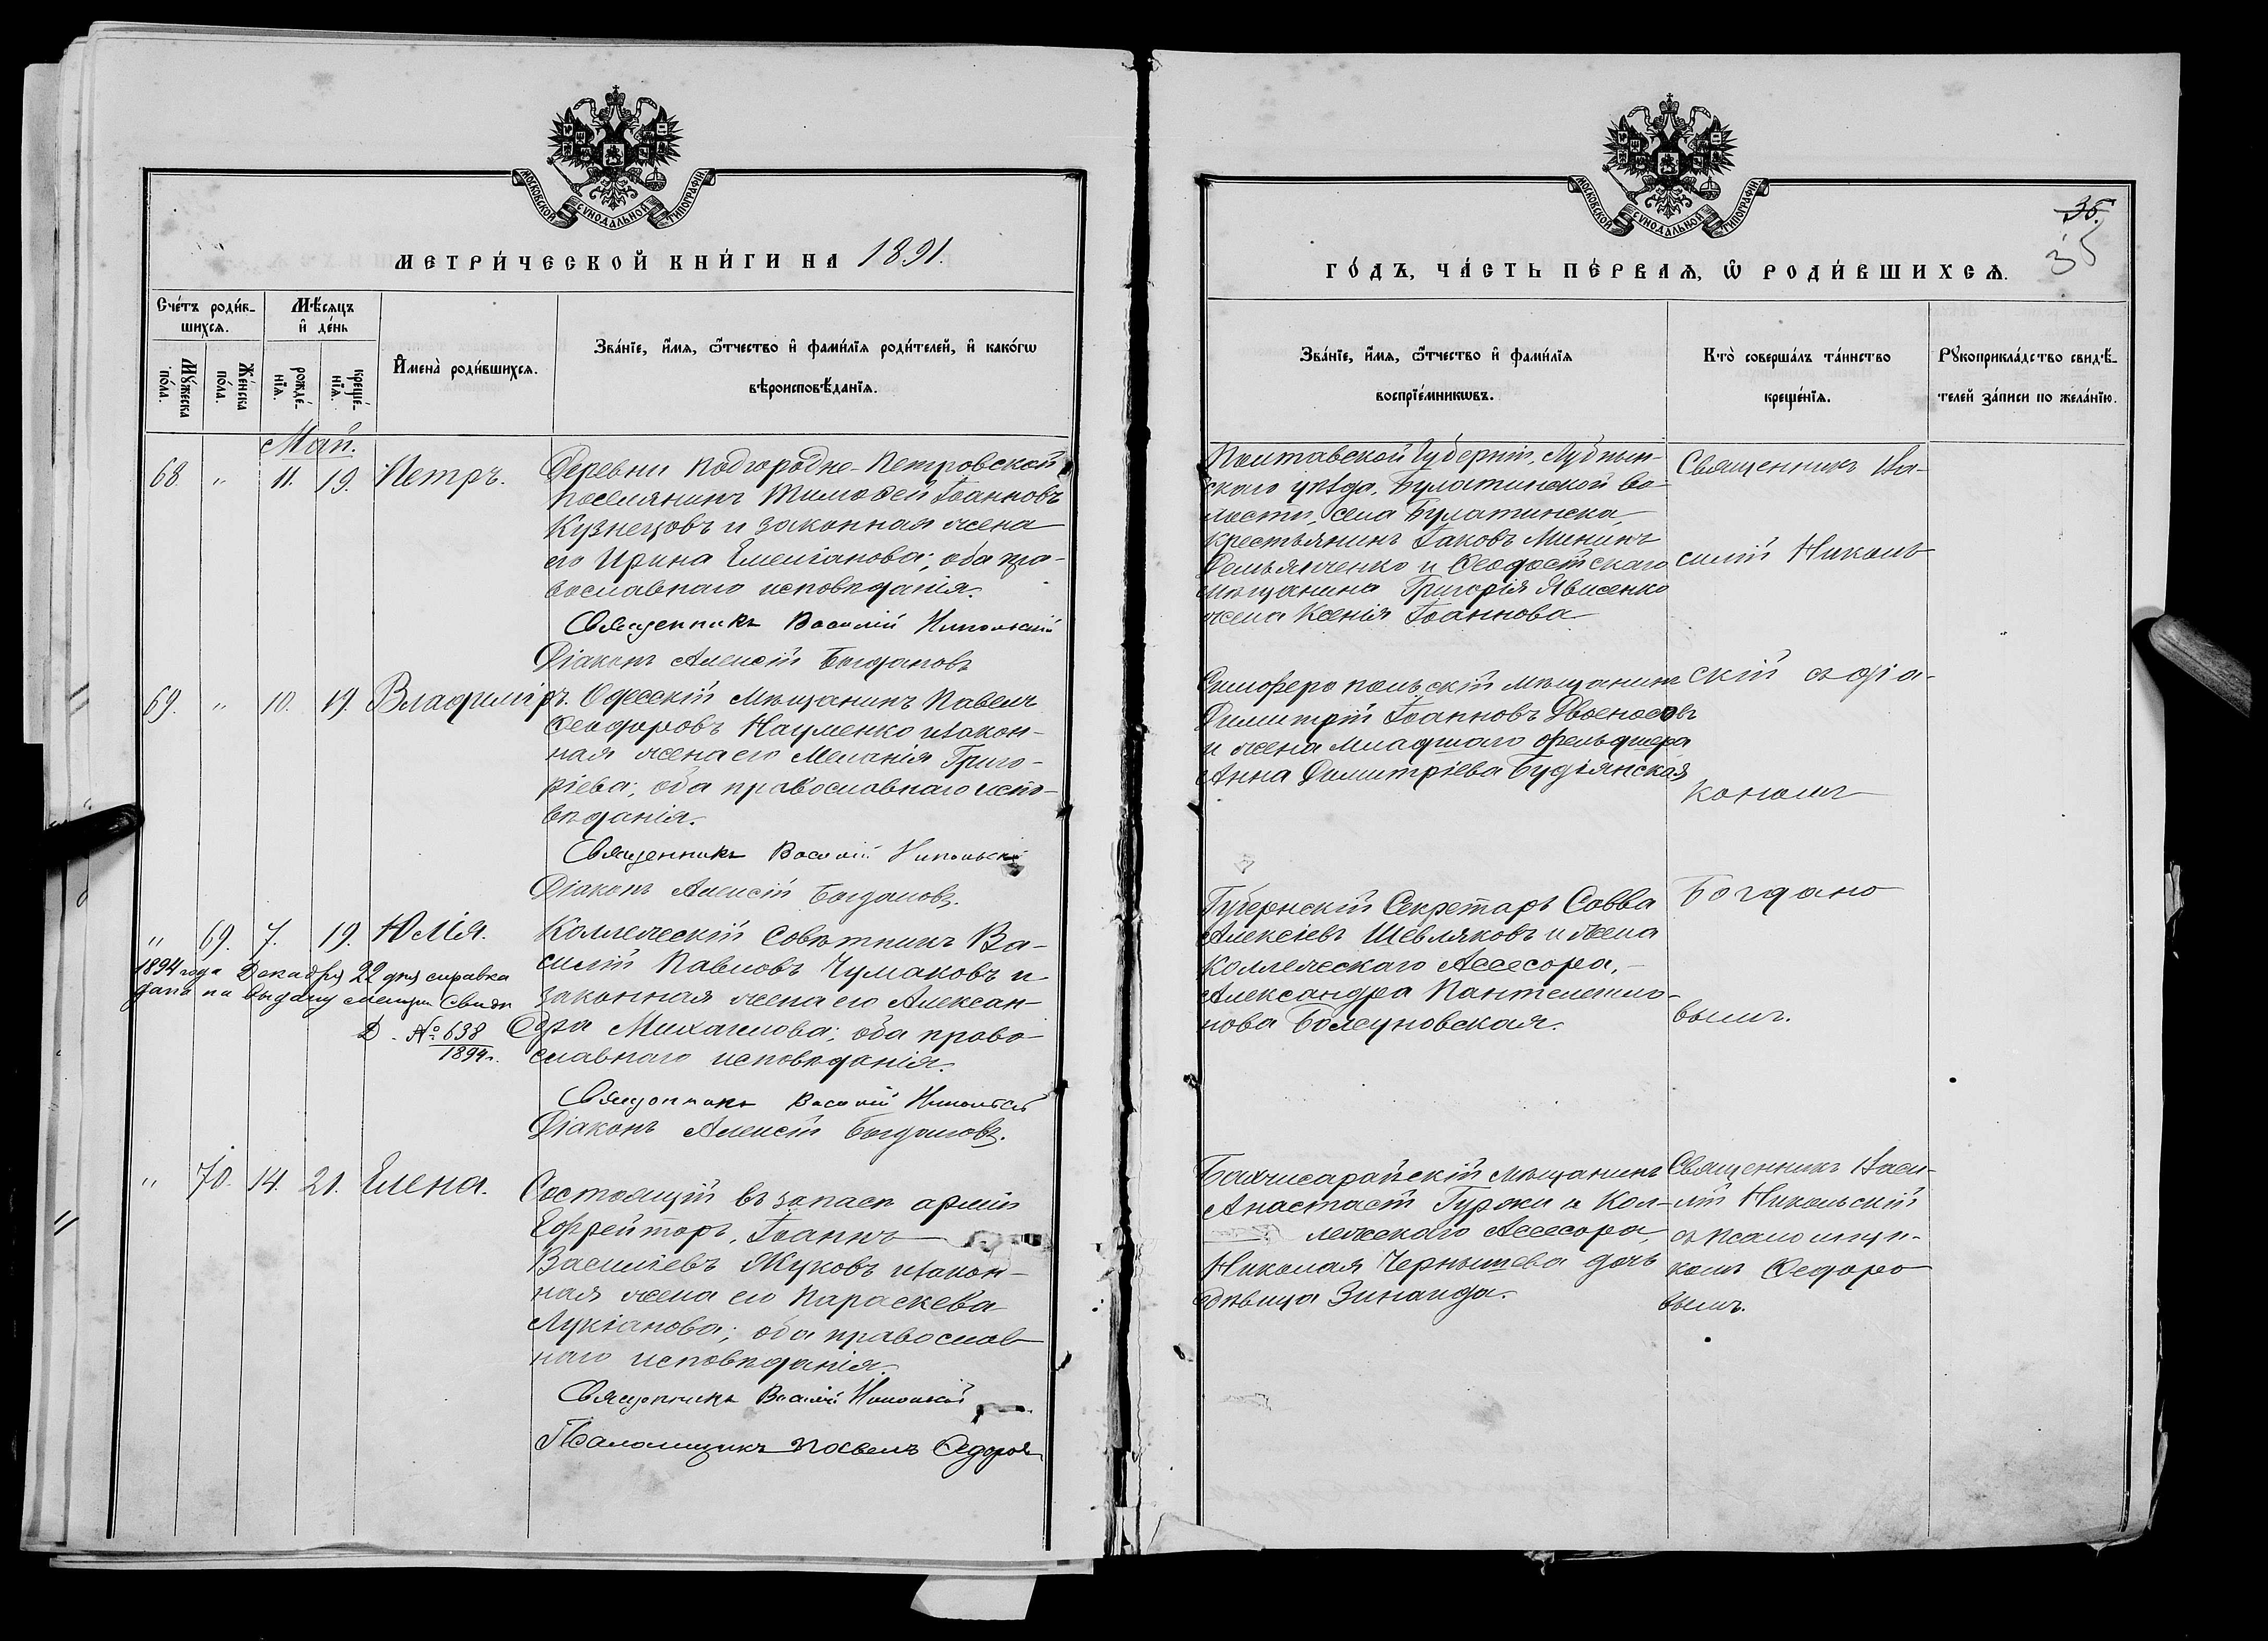 МОСКОВСКОЙ СѴНОДАЛЬНОЙ ТИПОГРАФІИ
МЕТРИ́ЧЕСКОЙ КНИ́ГИ НА 1891.
Сче́тъ роди́в-
шихсѧ.
Мѣ́сѧцъ
и҆ де́нь
Мꙋ́жеска
по́ла.
Же́нска
по́ла.
рожде́-
нїѧ.
креще́-
нїѧ.
И҆мена̀ роди́вшихсѧ.
Зва́нїе, и҆́мѧ, ѻ҆́тчество и҆ фами́лїѧ роди́телей, и҆ како́гѡ
вѣроисповѣ́данїѧ.
Май.
68 " 11. 19. Петръ.
Деревни Подгородне-Петровской
поселянинъ Тимоѳей Іоанновъ
Кузнецовъ и законная жена
его Ирина Емеліанова; оба пра-
вославнаго исповѣданія.
Священникъ Василій Никольскій
Діаконъ Алексій Богдановъ
69. " 10. 19. Владиміръ.
Одесскій мѣщанинъ Павелъ
Ѳеодоровъ Науменко и закон-
ная жена его Меланія Григо-
ріева; оба православнаго испо-
вѣданія.
Священникъ Василій Никольскій
Діаконъ Алексій Богдановъ.
" 69. 7. 19. Юлія.
1894 года Декабря 22 дня справка
дана на выдачу метрич. свидѣт
Д. № 638
1894 г.
Коллежскій Совѣтникъ Ва-
силій Павловъ Чумаковъ и
законная жена его Алексан-
дра Михаилова; оба право-
славнаго исповѣданія.
Священникъ Василій Никольскій
Діаконъ Алексій Богдановъ.
" 70. 14. 21. Елена.
Состоящій въ запасѣ арміи
Ефрейторъ, Іоаннъ
Василіевъ Жуковъ и закон-
ная жена его Параскева
Лукіанова; оба православ-
наго исповѣданія.
Священникъ Василій Никольскій
Псаломщикъ Павелъ Ѳедоровъ
МОСКОВСКОЙ СѴНОДАЛЬНОЙ ТИПОГРАФІИ
35.
35
ГО́ДЪ, ЧА́СТЬ ПЕ́РВАѦ, Ѡ҆ РОДИ́ВШИХСѦ.
Зва́нїе, и҆́мѧ, ѻ҆́тчество и҆ фами́лїѧ
воспрїе́мникѡвъ.
Кто̀ соверша́лъ та́инство
креще́нїѧ.
Рꙋкоприкла́дство свидѣ́-
телей за́писи по жела́нїю.
Полтавской Губерніи, Лубен-
скаго уѣзда, Булатинской во-
лости, села Булатинска,
крестьянинъ Іаковъ Мининъ
Демьянченко и Ѳеодосійскаго
мѣщанина Григорія Явисенко
жена Ксенія Іоаннова
Симферопольскій мѣщанинъ
Димитрій Іоанновъ Двоеносовъ
и жена младшаго фельдшера
Анна Димитріева Будіянская
Губернскій Секретарь Савва
Алексіевъ Шевляковъ и жена
Коллежскаго Ассесора,
Александра Пантелеимо-
нова Болсуновская.
Бахчисарайскій мѣщанинъ
Анастасій Гуржи и Кол-
лежскаго Ассесора,
Николая Чернышева дочь
дѣвица Зинаида.
Священникъ Ва-
силій Николь-
скій съ діа-
кономъ
Богдано
вымъ.
Священникъ Васи-
лій Никольскій
съ псаломщи-
комъ Ѳедоро
вымъ.